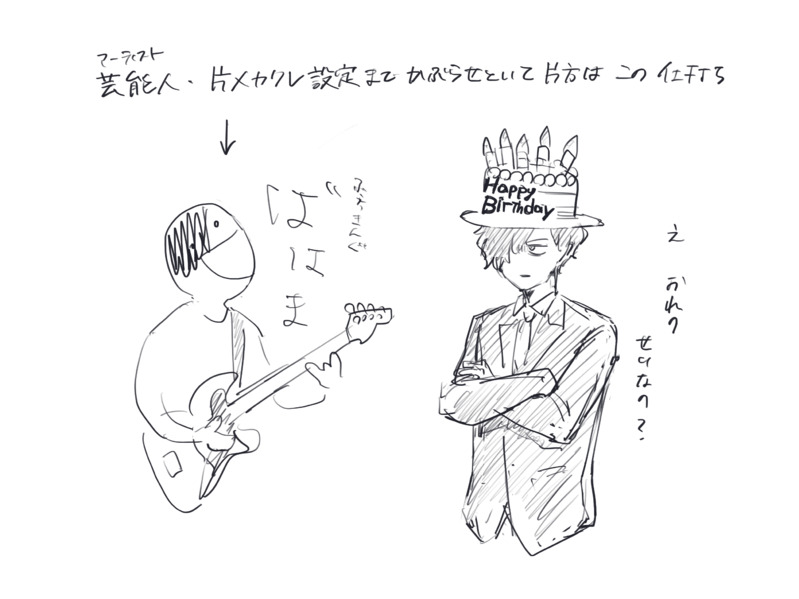 アーティスト
芸能人・片メカクレ設定までかぶらせといて片方はこの仕打ち
ふぁっきんぐ
ばはま
Happy
Birthday
え おれの
せいなの?